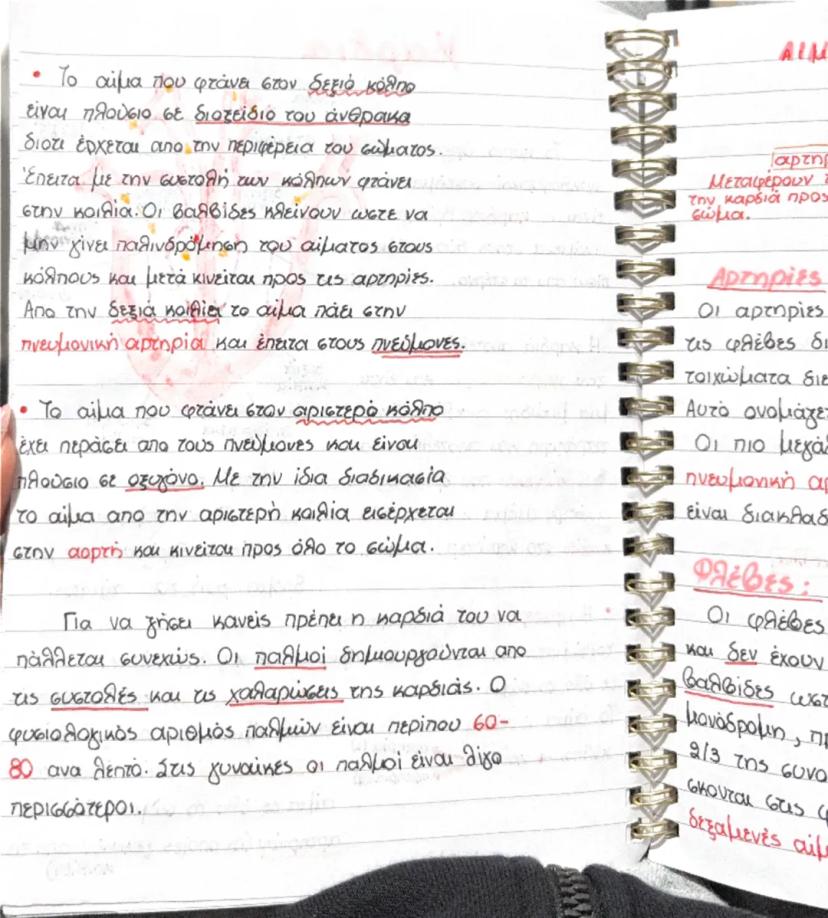 • Το αίμα που φτάνει στον δεξιό κόλπο
είναι πλούσιο σε διοξείδιο του άνθρακα
διοτι έρχεται απο την περιφέρεια του σώματος.
Έπειτα με την συστολή των κόλπων φτάνει
στην κοιλία. Οι βαλβίδες κλείνουν ώστε να
μην γίνει παλινδρόμηση του αίματος στους
κόλπους και μετά κινείται προς τις αρτηρίες.
Απο την δεξιά κοιλία το αίμα πάει στην
πνευμονική αρτηρία και έπειτα στους πνεύμονες.
• Το αίμα που φτάνει στον αριστερό κόλπο
έχει περάσει απο τους πνεύμονες και είναι
πλούσιο σε οξυγόνο. Με την ίδια διαδικασία
το αίμα απο την αριστερή κοιλία εισέρχεται
στην αορτή και κινείται προς όλο το σώμα.
Για να ζήσει κανείς πρέπει η καρδιά του να
πάλλεται συνεχώς. Οι παλμοί δημιουργούνται απο
τις συστολές και τις χαλαρώσεις της καρδιάς. Ο
φυσιολογικός αριθμός παλμών είναι περίπου 60-
80 ανα λεπτό. Στις γυναίκες οι παλμοί είναι λίγο
περισσότεροι.
ΑΙΜ
αρτηρ
Μεταφέρουν τ
την καρδιά προς
σώμα.
Αρτηρίες
Οι αρτηρίες
τις φλέβες δι
τοιχώματα διε
Αυτό ονομάζετ
Οι πιο μεγά
πνευμονική αρ
είναι διακλαδ
Φλέβες:
Οι φλέβες
και δεν έχουν
βαλβίδες ωστ
μονόδρομη, πρ
2/3 της συνο
σκονται στις φ
δεξαμενές αίμ